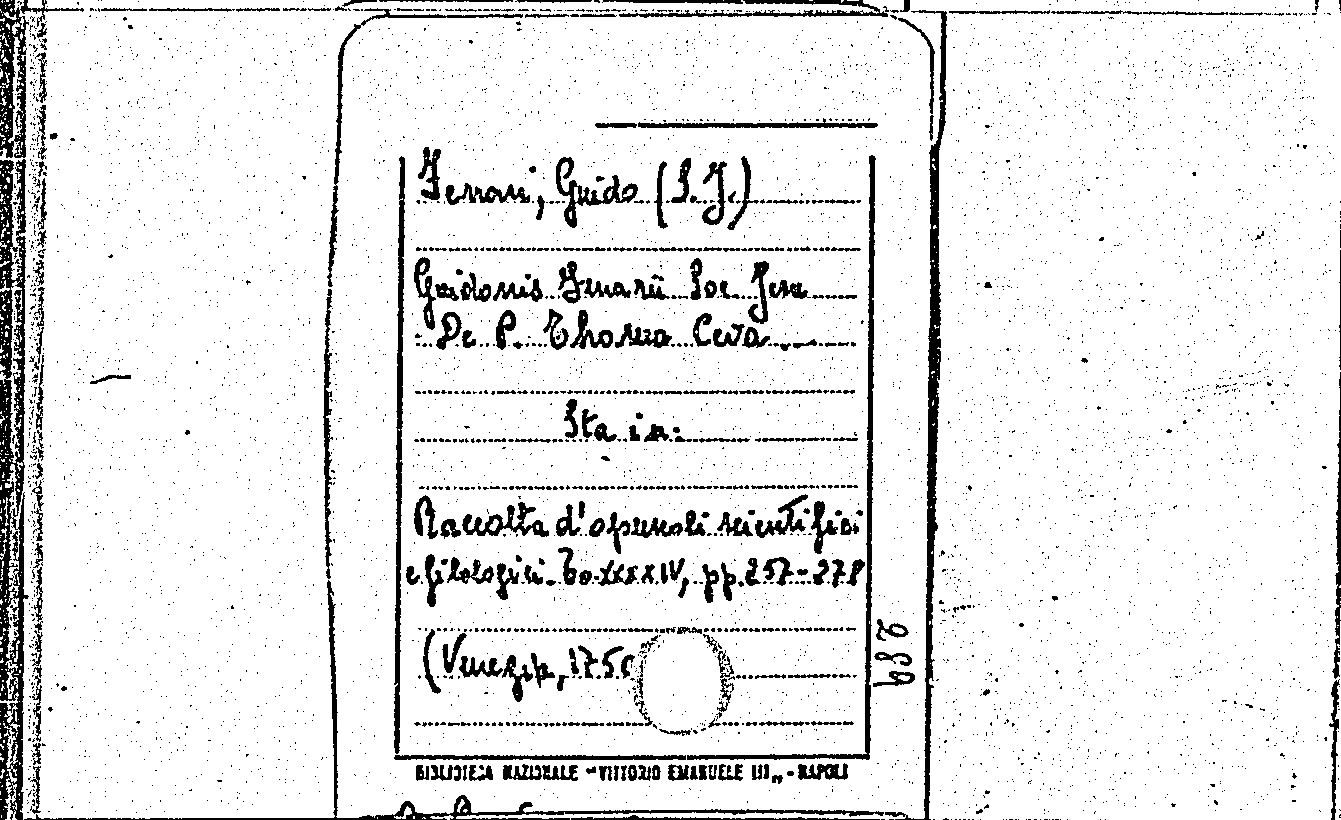 Ferrari, Guido (S.J.)
Guidonis Ferrarii Soc Jesu
De P. Thoma Ceva
Sta in:
Raccolta d'opuscoli scientifici
e filologici. To. XXXXIV, pp. 257-278
(Venezia, 1750
BIBLIOTECA NAZIONALE "VITTORIO EMANUELE III„ - NAPOLI